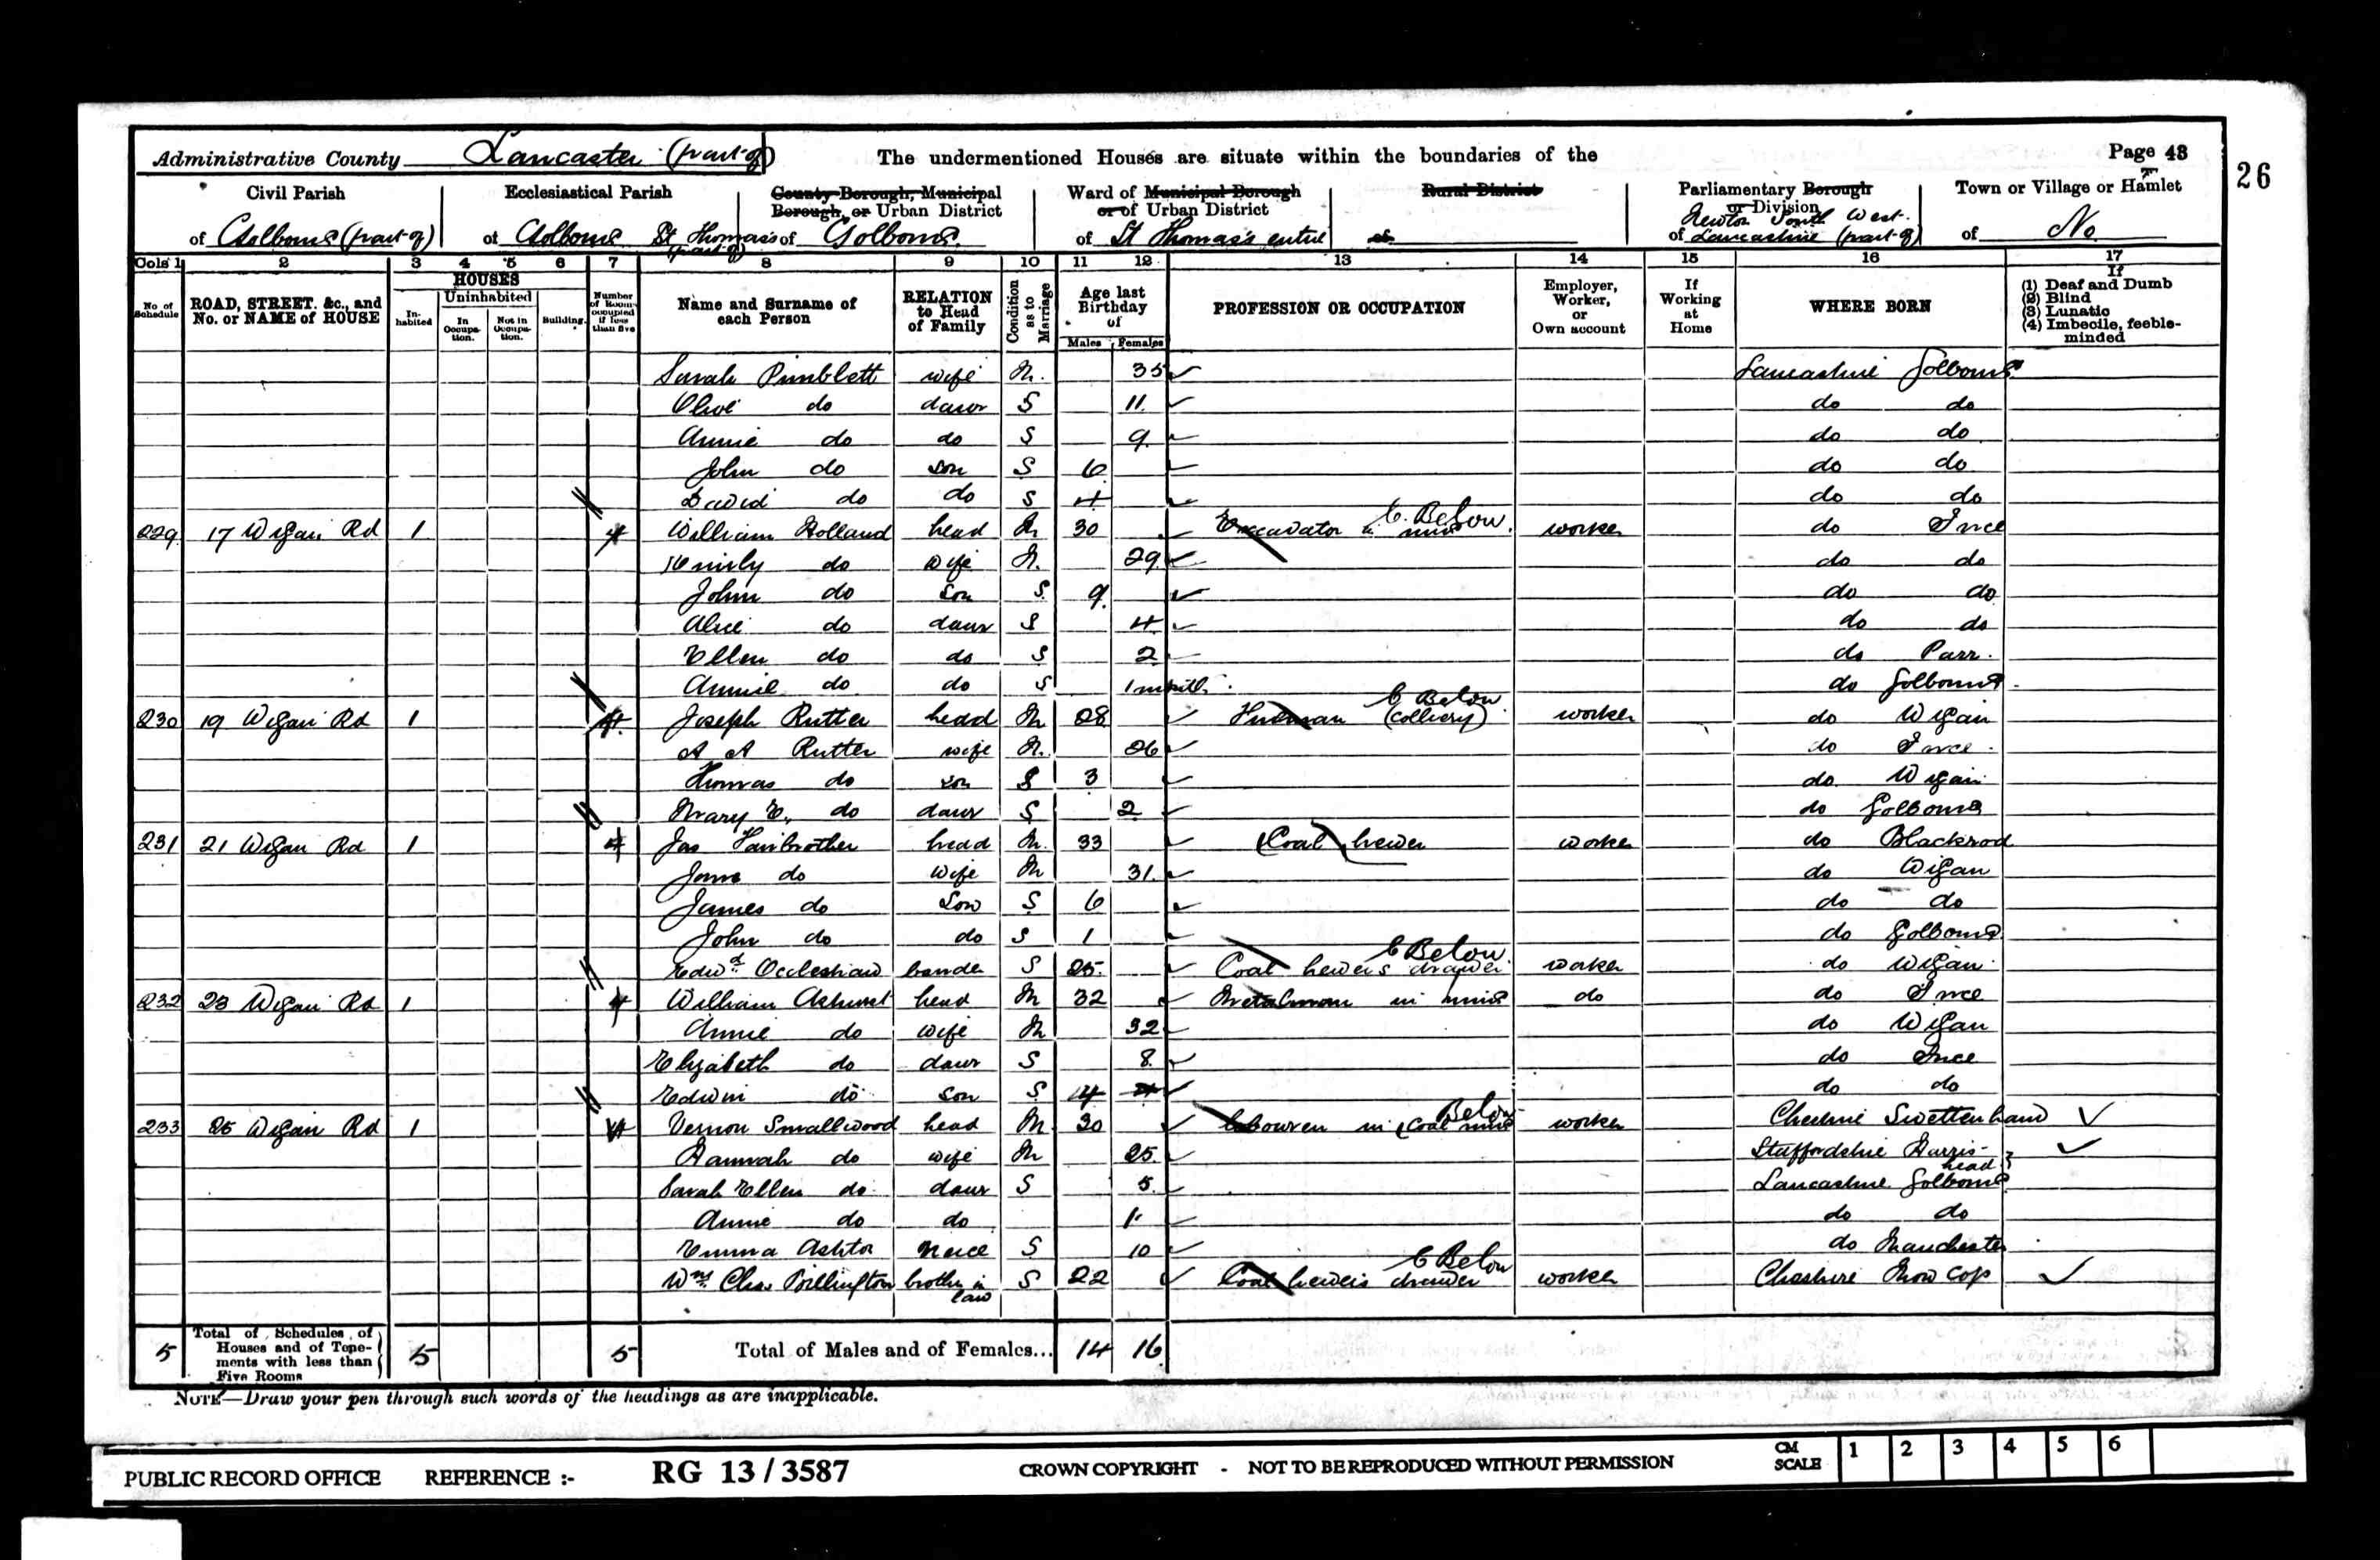 Administrative County Lancaster (part of) The undermentioned Houses are situate within the boundaries of the Page 43
26
Civil Parish Ecclesiastical Parish County Borough, Municipal Borough, or Urban District Ward of Municipal Borough or of Urban District Rural District Parliamentary Borough or Division Town or Village or Hamlet
of Golborne (part of) of Golborne St Thomas's (part of) of Golborne. of St Thomas's entire of of Newton South West Lancashire (part of) of No
Cols 1 2 3 4 5 6 7 8 9 10 11 12 13 14 15 16 17
No of Schedule ROAD, STREET, &c., and No. or NAME of HOUSE HOUSES Inhabited Uninhabited In Occupation. Not in Occupation. Building. Number of Rooms occupied if less than five Name and Surname of each Person RELATION to Head of Family Condition as to Marriage Age last Birthday of Males Females PROFESSION OR OCCUPATION Employer, Worker, or Own account If Working at Home WHERE BORN If (1) Deaf and Dumb (2) Blind (3) Lunatic (4) Imbecile, feeble-minded
Sarah Pimblett wife M. 35 Lancashire Golborne
Olive do daur S 11 do do
Annie do do S 9 do do
John do son S 6 do do
David do do S 4 do do
229 17 Wigan Rd 1 4 William Holland head M 30 Excavator in mine C. Below. worker do Ince
Emily do wife M. 29 do do
John do son S. 9 do do
Alice do daur S 4 do do
Ellen do do S 2 do Parr.
Annie do do S 1 month do Golborne
230 19 Wigan Rd 1 4 Joseph Rutter head M 28 (colliery) C Below. worker do Wigan
A A Rutter wife M. 26 do Ince.
Thomas do son S 3 do Wigan
Mary E. do daur S 2 do Golborne
231 21 Wigan Rd 1 4 Jas Fairbrother head M. 33 Coal hewer worker do Blackrod
Jane do wife M 31. do Wigan
James do Son S 6 do do
John do do S 1 do Golborne
Edwd. Occleshaw S 25 Coal hewers drawer C Below. worker do Wigan
232 23 Wigan Rd 1 4 William Ashurst head M 32 Metalman in mine do do Ince
Annie do wife M 32 do Wigan
Elizabeth do daur S 8 do Ince
Edwin do son S 4 4 do do
233 25 Wigan Rd 1 4 Vernon Smallwood head M 30 in coal mine Below worker Cheshire Swettenham
Hannah do wife M 25. Staffordshire Harris-head
Sarah Ellen do daur S 5 Lancashire Golborne
Annie do do 1 do do
Emma Ashton Neice S 10 do Manchester
Wm. Chas Pillington brother in law S 22 Coal hewers drawer C Below worker Cheshire Mow Cop
5 Total of Schedules of Houses and of Tenements with less than Five Rooms 5 5 Total of Males and of Females... 14 16
NOTE—Draw your pen through such words of the headings as are inapplicable.
PUBLIC RECORD OFFICE REFERENCE :- RG 13 / 3587 CROWN COPYRIGHT - NOT TO BE REPRODUCED WITHOUT PERMISSION CM SCALE 1 2 3 4 5 6